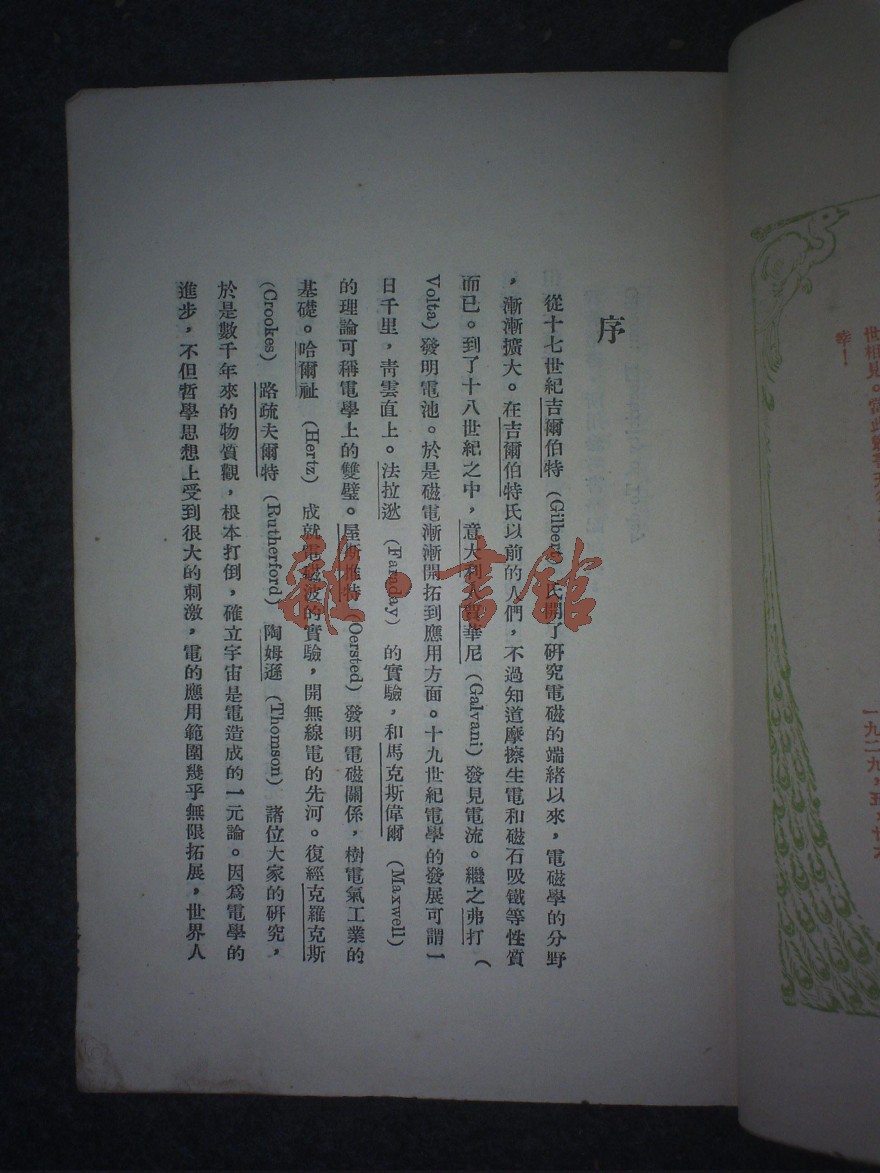 世相見。
幸！
一九二九，五，廿六
序
從十七世紀吉爾伯特 (Gilbert) 氏開了研究電磁的端緒以來，電磁學的分野
，漸漸擴大。在吉爾伯特氏以前的人們，不過知道摩擦生電和磁石吸鐵等性質
而已。到了十八世紀之中，意大利人賈華尼 (Galvani) 發見電流。繼之弗打 (
Volta) 發明電池。於是磁電漸漸開拓到應用方面。十九世紀電學的發展可謂一
日千里，青雲直上。法拉逖 (Faraday) 的實驗，和馬克斯偉爾 (Maxwell)
的理論可稱電學上的雙璧。屋斯推特 (Oersted) 發明電磁關係，樹電氣工業的
基礎。哈爾祉 (Hertz) 成就電磁波的實驗，開無線電的先河。復經克羅克斯
(Crookes) 路疏夫爾特 (Rutherford) 陶姆遜 (Thomson) 諸位大家的研究，
於是數千年來的物質觀，根本打倒，確立宇宙是電造成的一元論。因爲電學的
進步，不但哲學思想上受到很大的刺激，電的應用範圍幾乎無限拓展，世界人
雜·書館